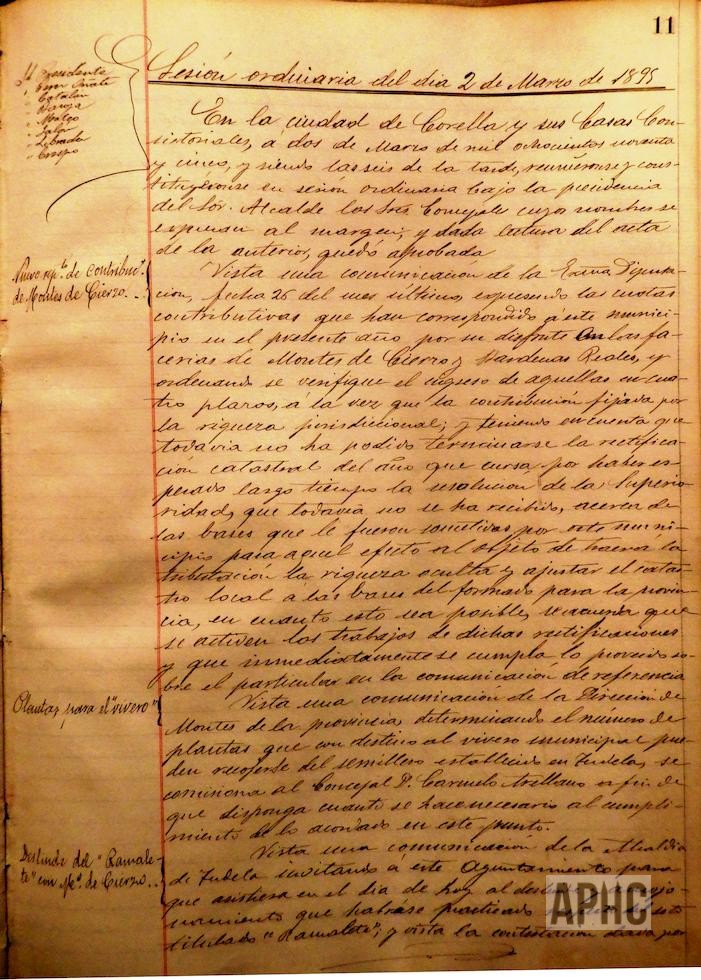 11
Sesión ordinaria del dia 2 de Marzo de 1895
Presidente
Catalán
Labrador
Crespo
En la ciudad de Corella y sus Casas Con-
sistoriales, a dos de Marzo de mil ochocientos noventa
y cinco, y siendo las seis de la tarde, reuniéronse y cons-
tituyéronse en sesión ordinaria bajo la presidencia
del Sor. Alcalde los Sres Concejales cuyos nombres se
expresan al margen; y dada lectura del acta
de la anterior, quedó aprobada
Nuevo de contribuc.
de Montes de Cierzo.
Vista una comunicacion de la Exma Diputa-
cion, fecha 26 del mes último, expresando las cuotas
contributivas que han correspondido á este munici-
pio en el presente año por su disfrute en las fa-
cerias de Montes de Cierzo y Bardenas Reales, y
ordenando se verifique el ingreso de aquellas en cua-
tro plazos, á la vez que la contribución fijada por
la riqueza jurisdiccional; y teniendo en cuenta que
todavia no ha podido terminarse la rectifica-
ción catastral del año que cursa por haber es-
perado largo tiempo la resolucion de la Superio-
ridad, que todavia no se ha recibido, acerca de
las bases que le fueron sometidas por este muni-
cipio para aquel efecto al objeto de traer á la
tributación la riqueza oculta y ajustar el catas-
tro local a las bases del formado para la provin-
cia, en cuanto esto sea posible, se acuerda que
se activen los trabajos de dichas rectificaciones
y que inmediatamente se cumpla lo proveido so-
bre el particular en la comunicación de referencia
Plantas para el "vivero"
Vista una comunicación de la Direccion de
Montes de la provincia determinando el número de
plantas que con destino al vivero municipal pue-
den recogerse del semillero establecido en Tudela, se
comisiona al Concejal D. Carmelo Arellano a fin de
que disponga cuanto se hace necesario al cumpli-
miento de lo acordado en este punto.
Deslinde del "Ramale-
te" con M. de Cierzo.
Vista una comunicación de la Alcaldia
de Tudela invitando á este Ayuntamiento para
que asistiera en el dia de hoy al
que habráse practicado
titulado "Ramalete"; y vista la contestacion dada por
APHC